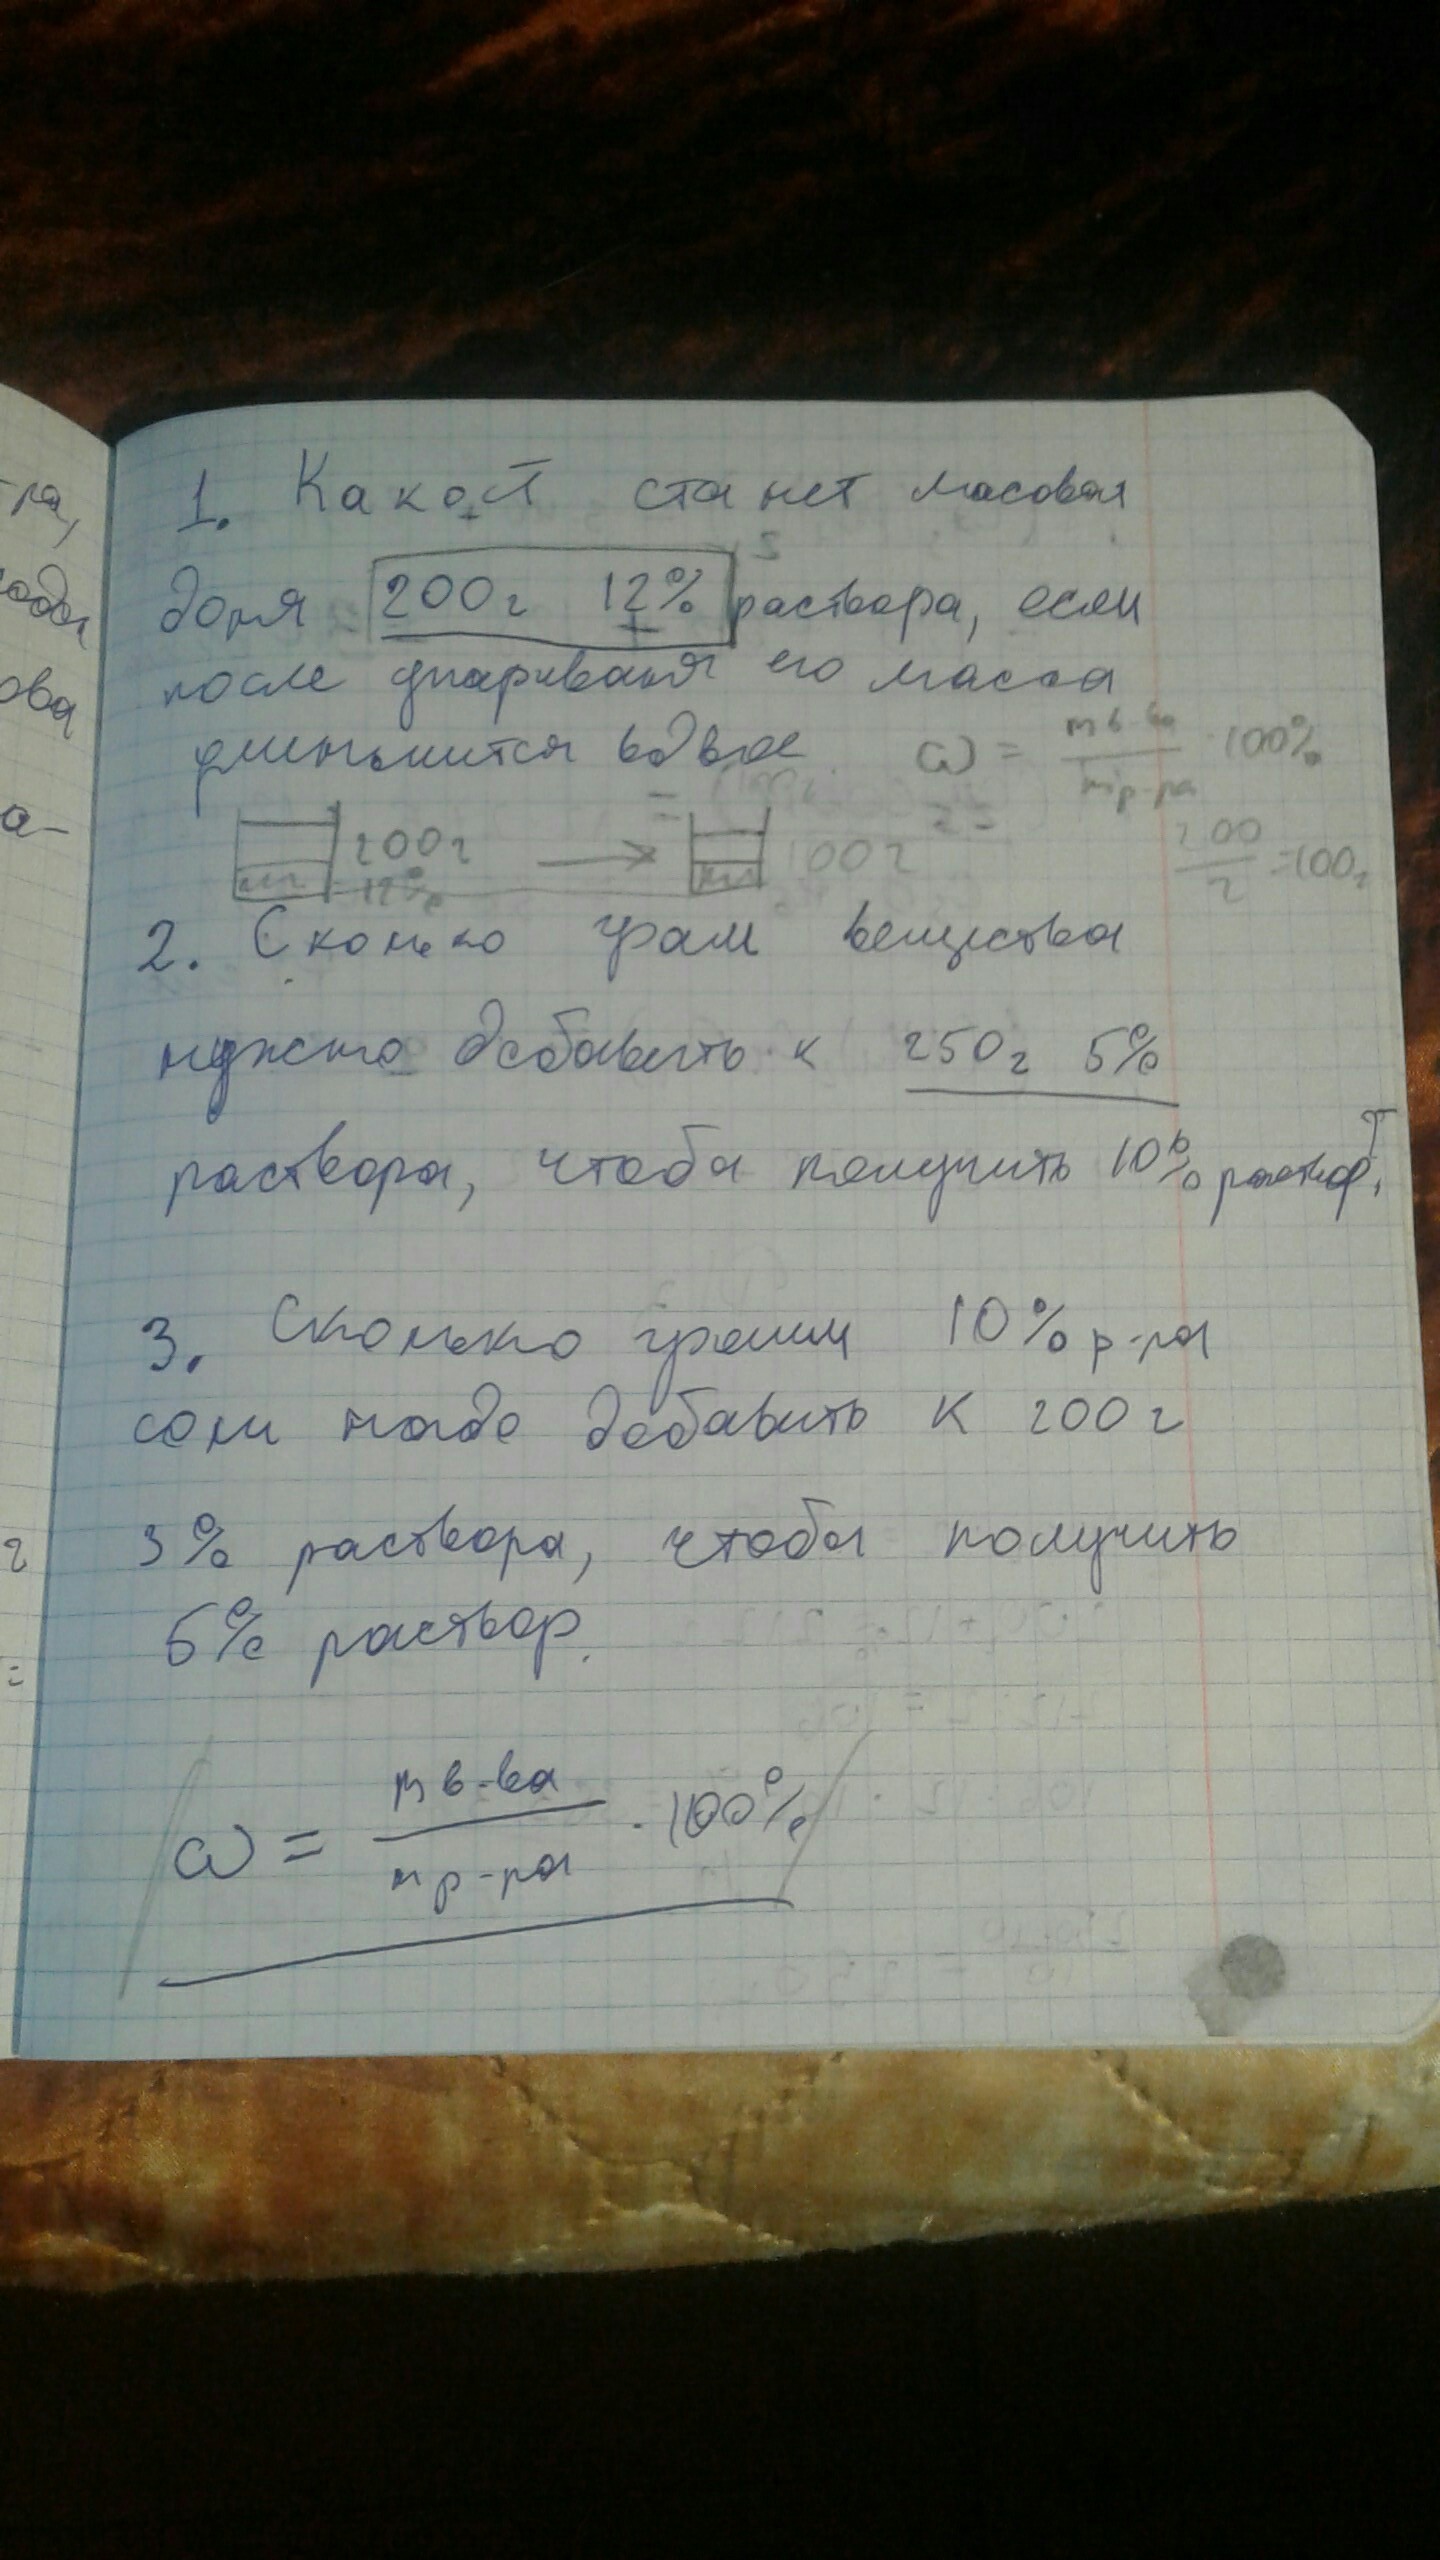 1. Какой станет масовая
доля 200г 12% раствора, если
после упаривания его масса
уменьшится вдвое
ω = m в-ва / m р-ра · 100%
200г 12% → 100г 200/2 = 100г
2. Сколько грам вещества
нужно добавить к 250г 5%
раствора, чтобы получить 10% раствор.
3. Сколько грамм 10% р-ра
соли надо добавить к 200г
3% раствора, чтобы получить
5% раствор.
ω = m в-ва / m р-ра · 100%
ра,
ова
а-
г
=